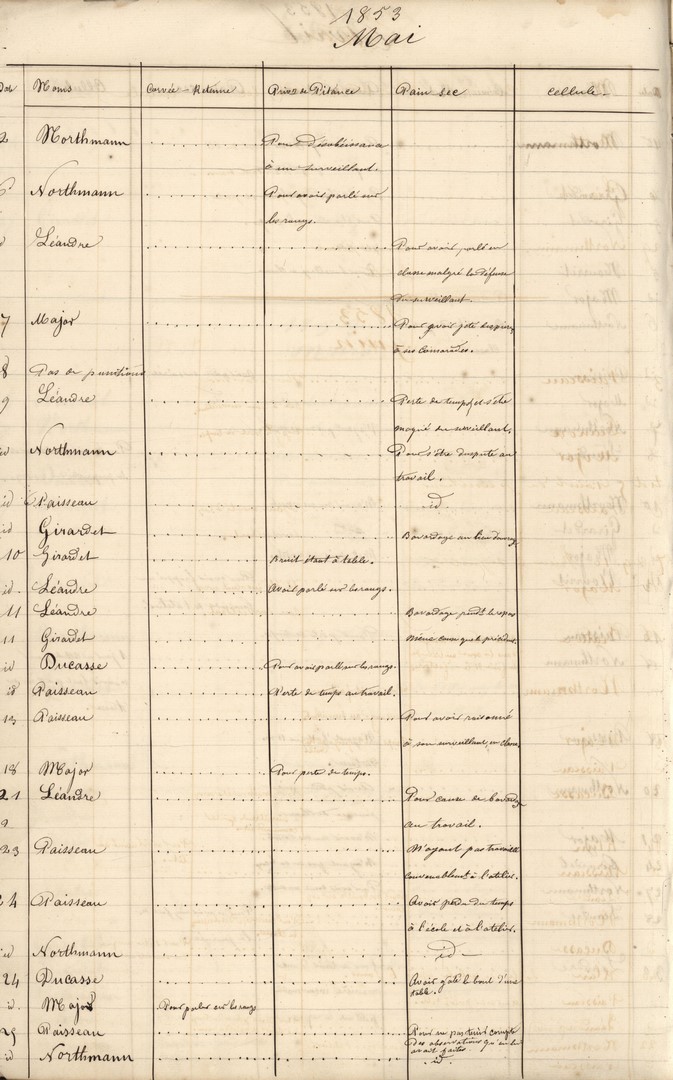 1853
Mai
Noms Corvée - Retenue Privon de Pitance Pain sec cellule
2 Northmann Pour désobéissance
à un surveillant.
Northmann Pour avoir parlé sur
les rangs.
Léandre Pour avoir parlé en
classe malgré la défense
du surveillant.
7 Major Pour avoir jeté des pierres
à ses camarades.
8 Pas de punitions
9 Léandre Perte de temps et s'être
moqué du surveillant.
id Northmann Pour s'être disputé au
travail.
id Paisseau id
id Girardet Bavardage au lieu
10 Girardet Bruit étant à table.
id. Léandre Avoir parlé sur les rangs.
11 Léandre Bavardage pendt le repas
11 Girardet Même cause que le précédent.
id Ducasse Pour avoir parlé sur les rangs.
id Paisseau Perte de temps au travail.
13 Paisseau Pour avoir raisonné
à son surveillant, en classe.
18 Major Pour perte de temps.
21 Léandre Pour cause de bavardage
au travail.
23 Paisseau N'ayant pas travaillé
convenablement à l'atelier.
24 Paisseau Avoir perdu du temps
à l'école et à l'atelier.
id Northmann id
24 Ducasse Avoir gâté le bout d'une
table.
id. Major Pour parler sur les rangs
25 Paisseau Pour ne pas tenir compte
des observations qu'on lui
avait faites
id Northmann id.